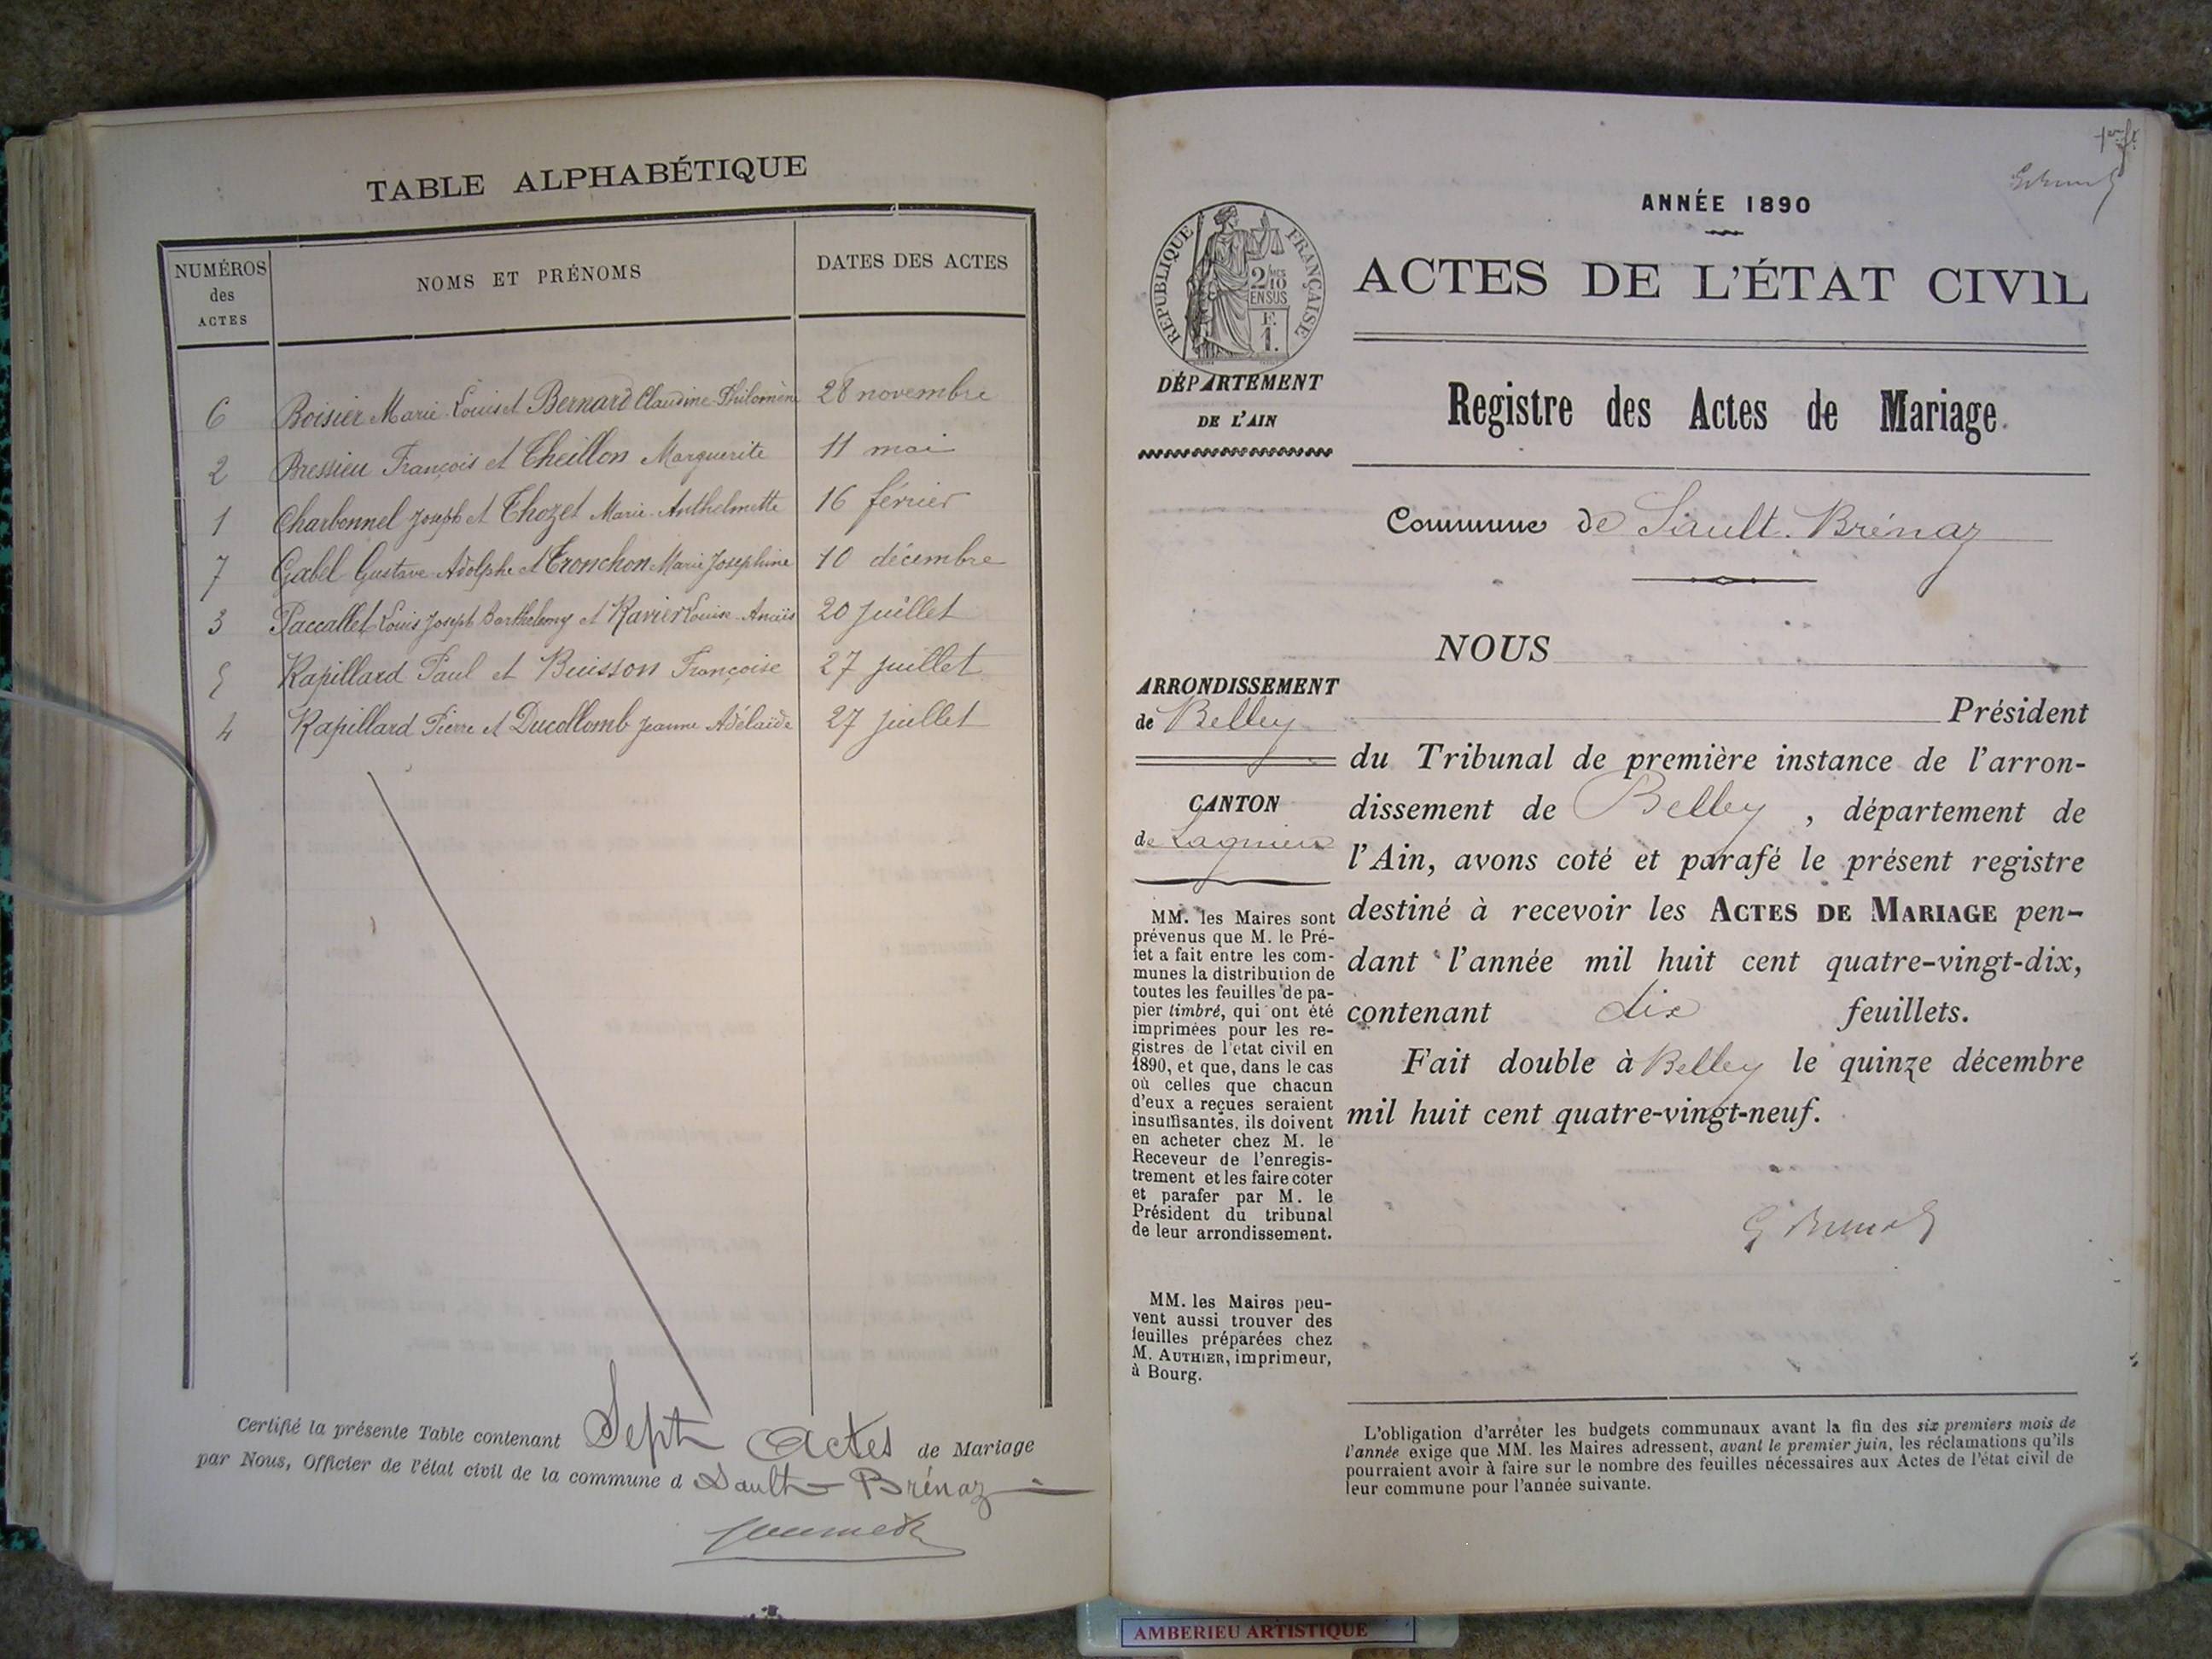 TABLE ALPHABÉTIQUE
NUMÉROS
des
ACTES
NOMS ET PRÉNOMS
DATES DES ACTES
6 Boisier Marie Louis et Bernard Claudine Philomène 28 novembre
2 Bressieu François et Theillon Marguerite 11 mai
1 Charbonnel Joseph et Thozet Marie Anthelmette 16 février
7 Gabel Gustave Adolphe et Tronchon Marie Joséphine 10 décembre
3 Paccallet Louis Joseph Barthelemy et Ravier Louise Anaïs 20 juillet
5 Rapillard Paul et Buisson Françoise 27 juillet
4 Rapillard Pierre et Ducollomb Jeanne Adélaïde 27 juillet
Certifié la présente Table contenant Sept Actes de Mariage
par Nous, Officier de l'état civil de la commune d Sault-Brénaz
1er ft
ANNÉE 1890
ACTES DE L'ÉTAT CIVIL
RÉPUBLIQUE FRANÇAISE
2/10
EN SUS
F.
1.
DÉPARTEMENT
DE L'AIN
Registre des Actes de Mariage.
Commune de Sault-Brénaz
NOUS
ARRONDISSEMENT
de Belley
CANTON
de Lagnieu
MM. les Maires sont
prévenus que M. le Pré-
fet a fait entre les com-
munes la distribution de
toutes les feuilles de pa-
pier timbré, qui ont été
imprimées pour les re-
gistres de l'etat civil en
1890, et que, dans le cas
où celles que chacun
d'eux a reçues seraient
insuffisantes, ils doivent
en acheter chez M. le
Receveur de l'enregis-
trement et les faire coter
et parafer par M. le
Président du tribunal
de leur arrondissement.
MM. les Maires peu-
vent aussi trouver des
feuilles préparées chez
M. AUTHIER, imprimeur,
à Bourg.
Président
du Tribunal de première instance de l'arron-
dissement de Belley , département de
l'Ain, avons coté et parafé le présent registre
destiné à recevoir les ACTES DE MARIAGE pen-
dant l'année mil huit cent quatre-vingt-dix,
contenant dix feuillets.
Fait double à Belley le quinze décembre
mil huit cent quatre-vingt-neuf.
L'obligation d'arrêter les budgets communaux avant la fin des six premiers mois de
l'année exige que MM. les Maires adressent, avant le premier juin, les réclamations qu'ils
pourraient avoir à faire sur le nombre des feuilles nécessaires aux Actes de l'état civil de
leur commune pour l'année suivante.
AMBERIEU ARTISTIQUE